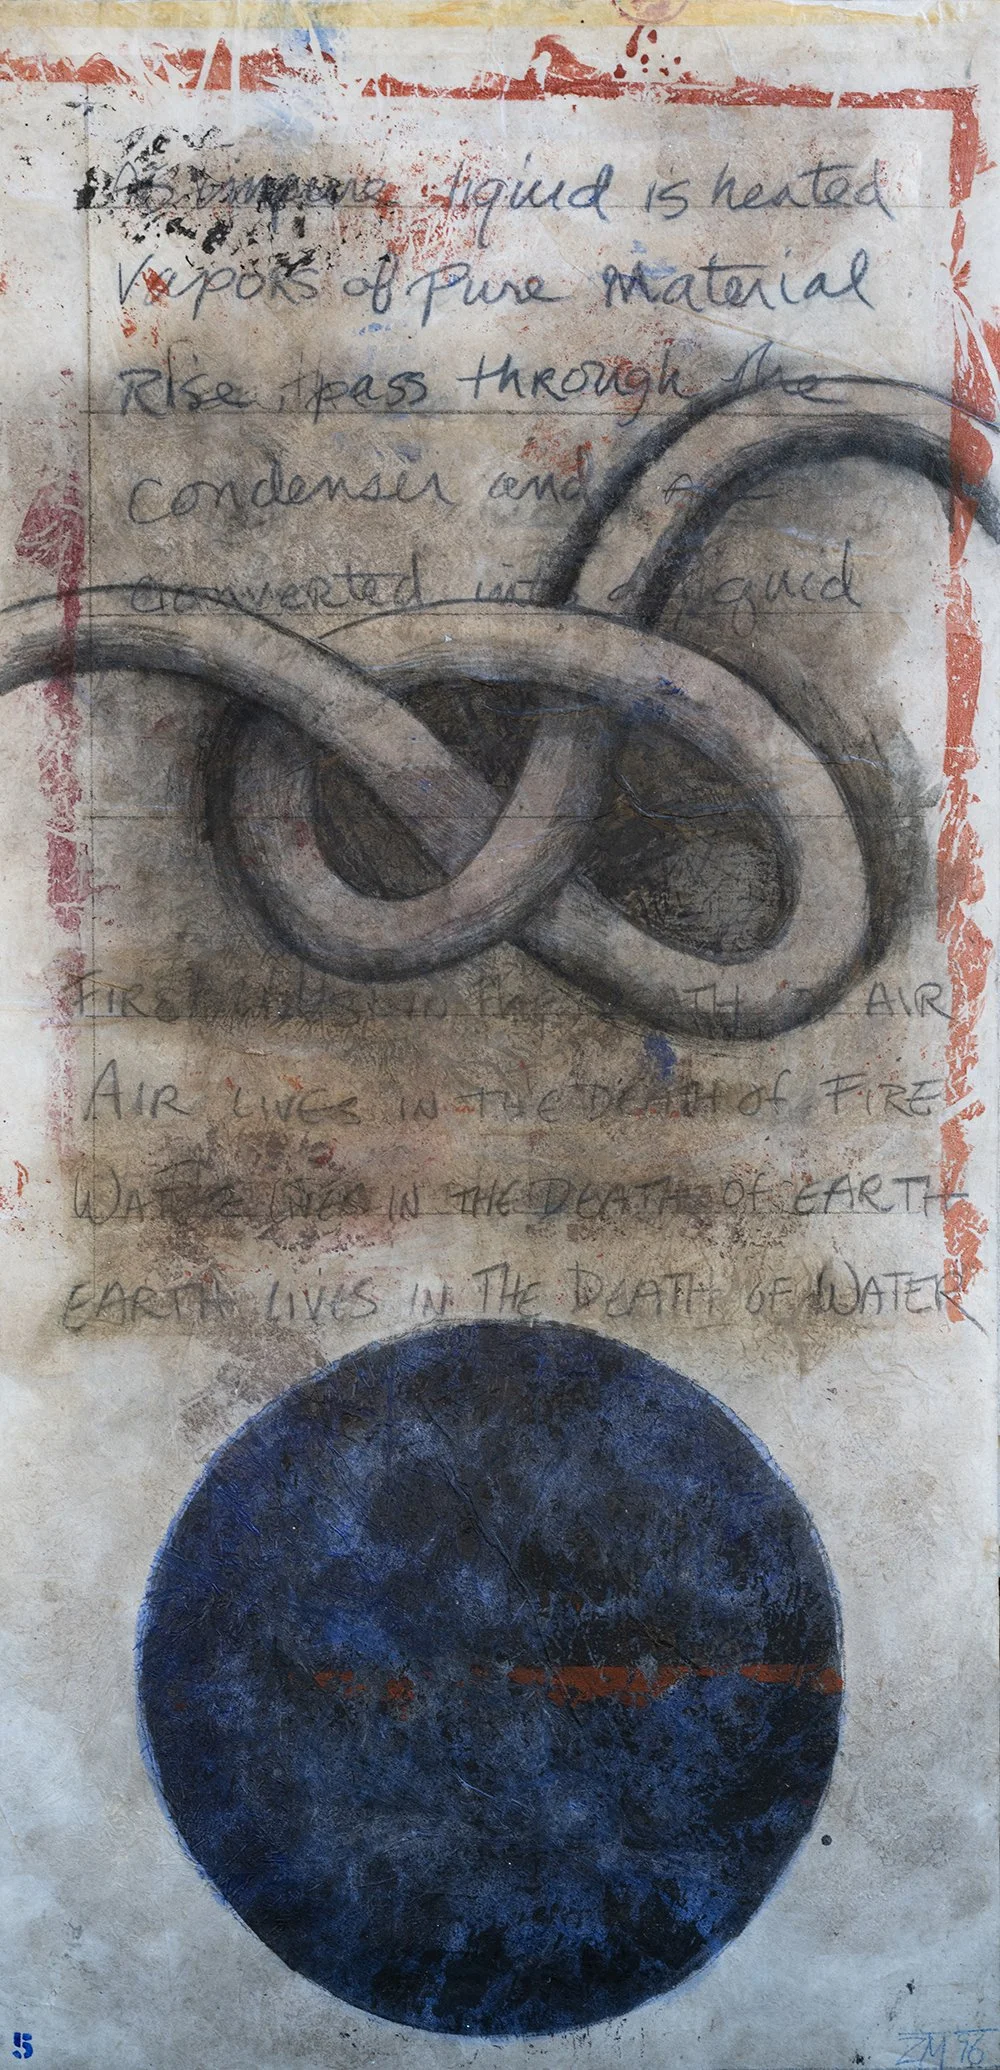 As impure liquid is heated
Vapors of Pure Material
Rise, pass through the
condenser and are
converted into a liquid
FIRE LIVES IN THE DEATH OF AIR
AIR LIVES IN THE DEATH of FIRE
WATER LIVES IN THE DEATH OF EARTH
EARTH LIVES IN THE DEATH OF WATER
5
ZM 96